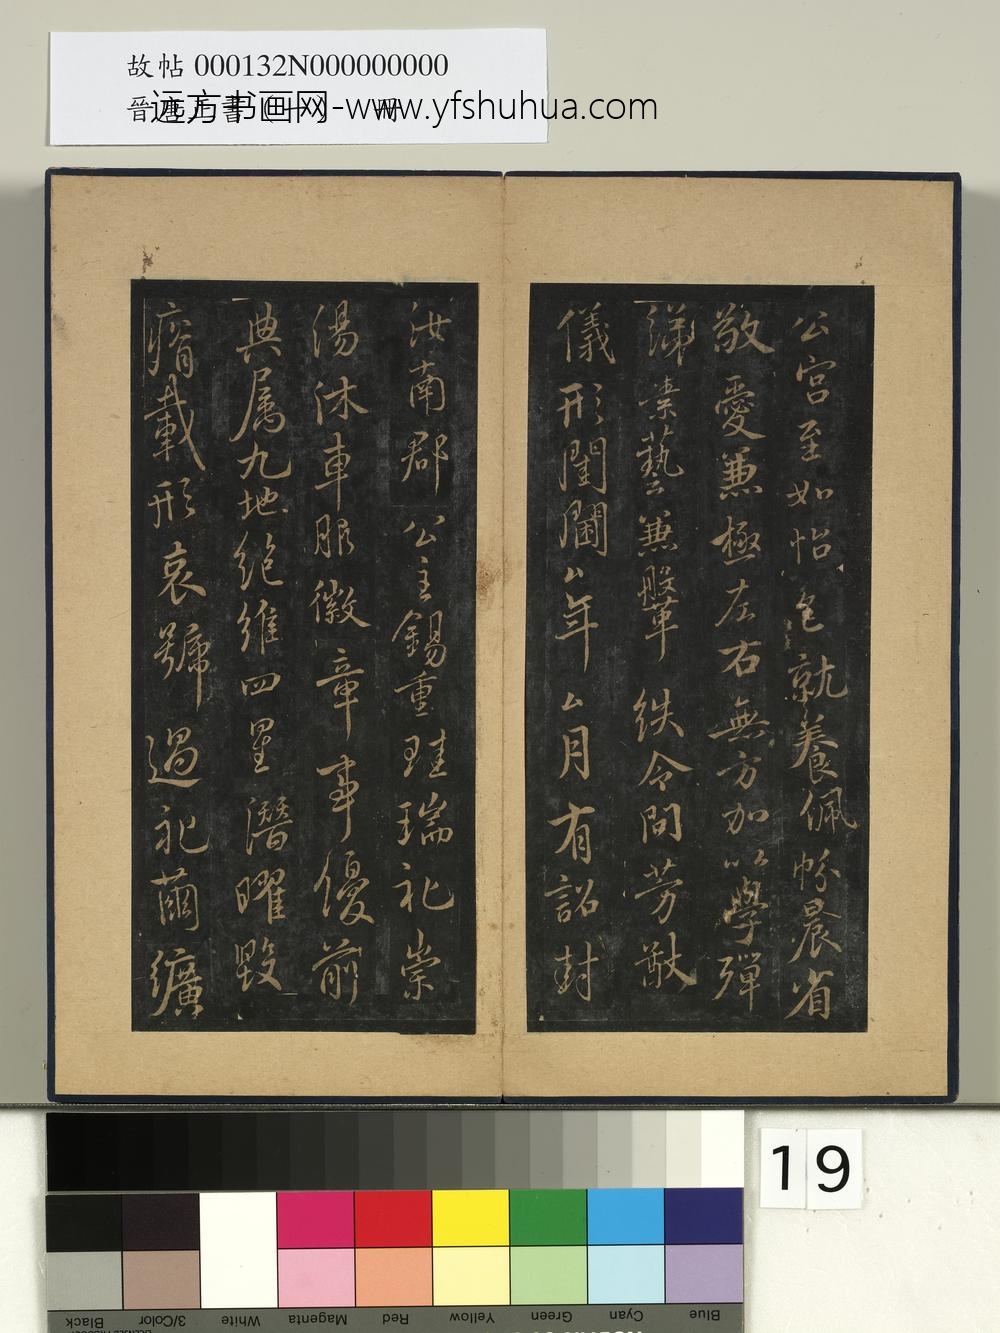 故帖 000132N000000000
远方书画网-www.yfshuhua.com
公宮至如怡色就養佩帉晨省
敬愛兼極左右無方加以學殫
綈素藝兼鞶紩令問芳猷
儀形閨閫ム年ム月有詔封
汝南郡公主錫重珪瑞礼崇
湯沐車服徽章事優前
典属九地絶維四星潛曜毀
瘠載形哀號過礼繭纊
19
Black
3/Color
White
Magenta
Red
Yellow
Green
Cyan
Blue